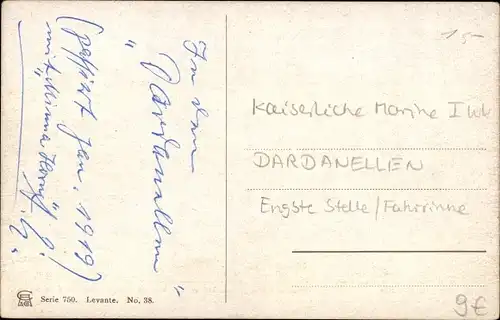 In den
"Dardanellen"
(passirt Jan. 1919)
mit "Minna Horn"
15
Kaiserliche Marine I WK
DARDANELLEN
Engste Stelle / Fahrrinne
9€
Serie 750. Levante. No. 38.